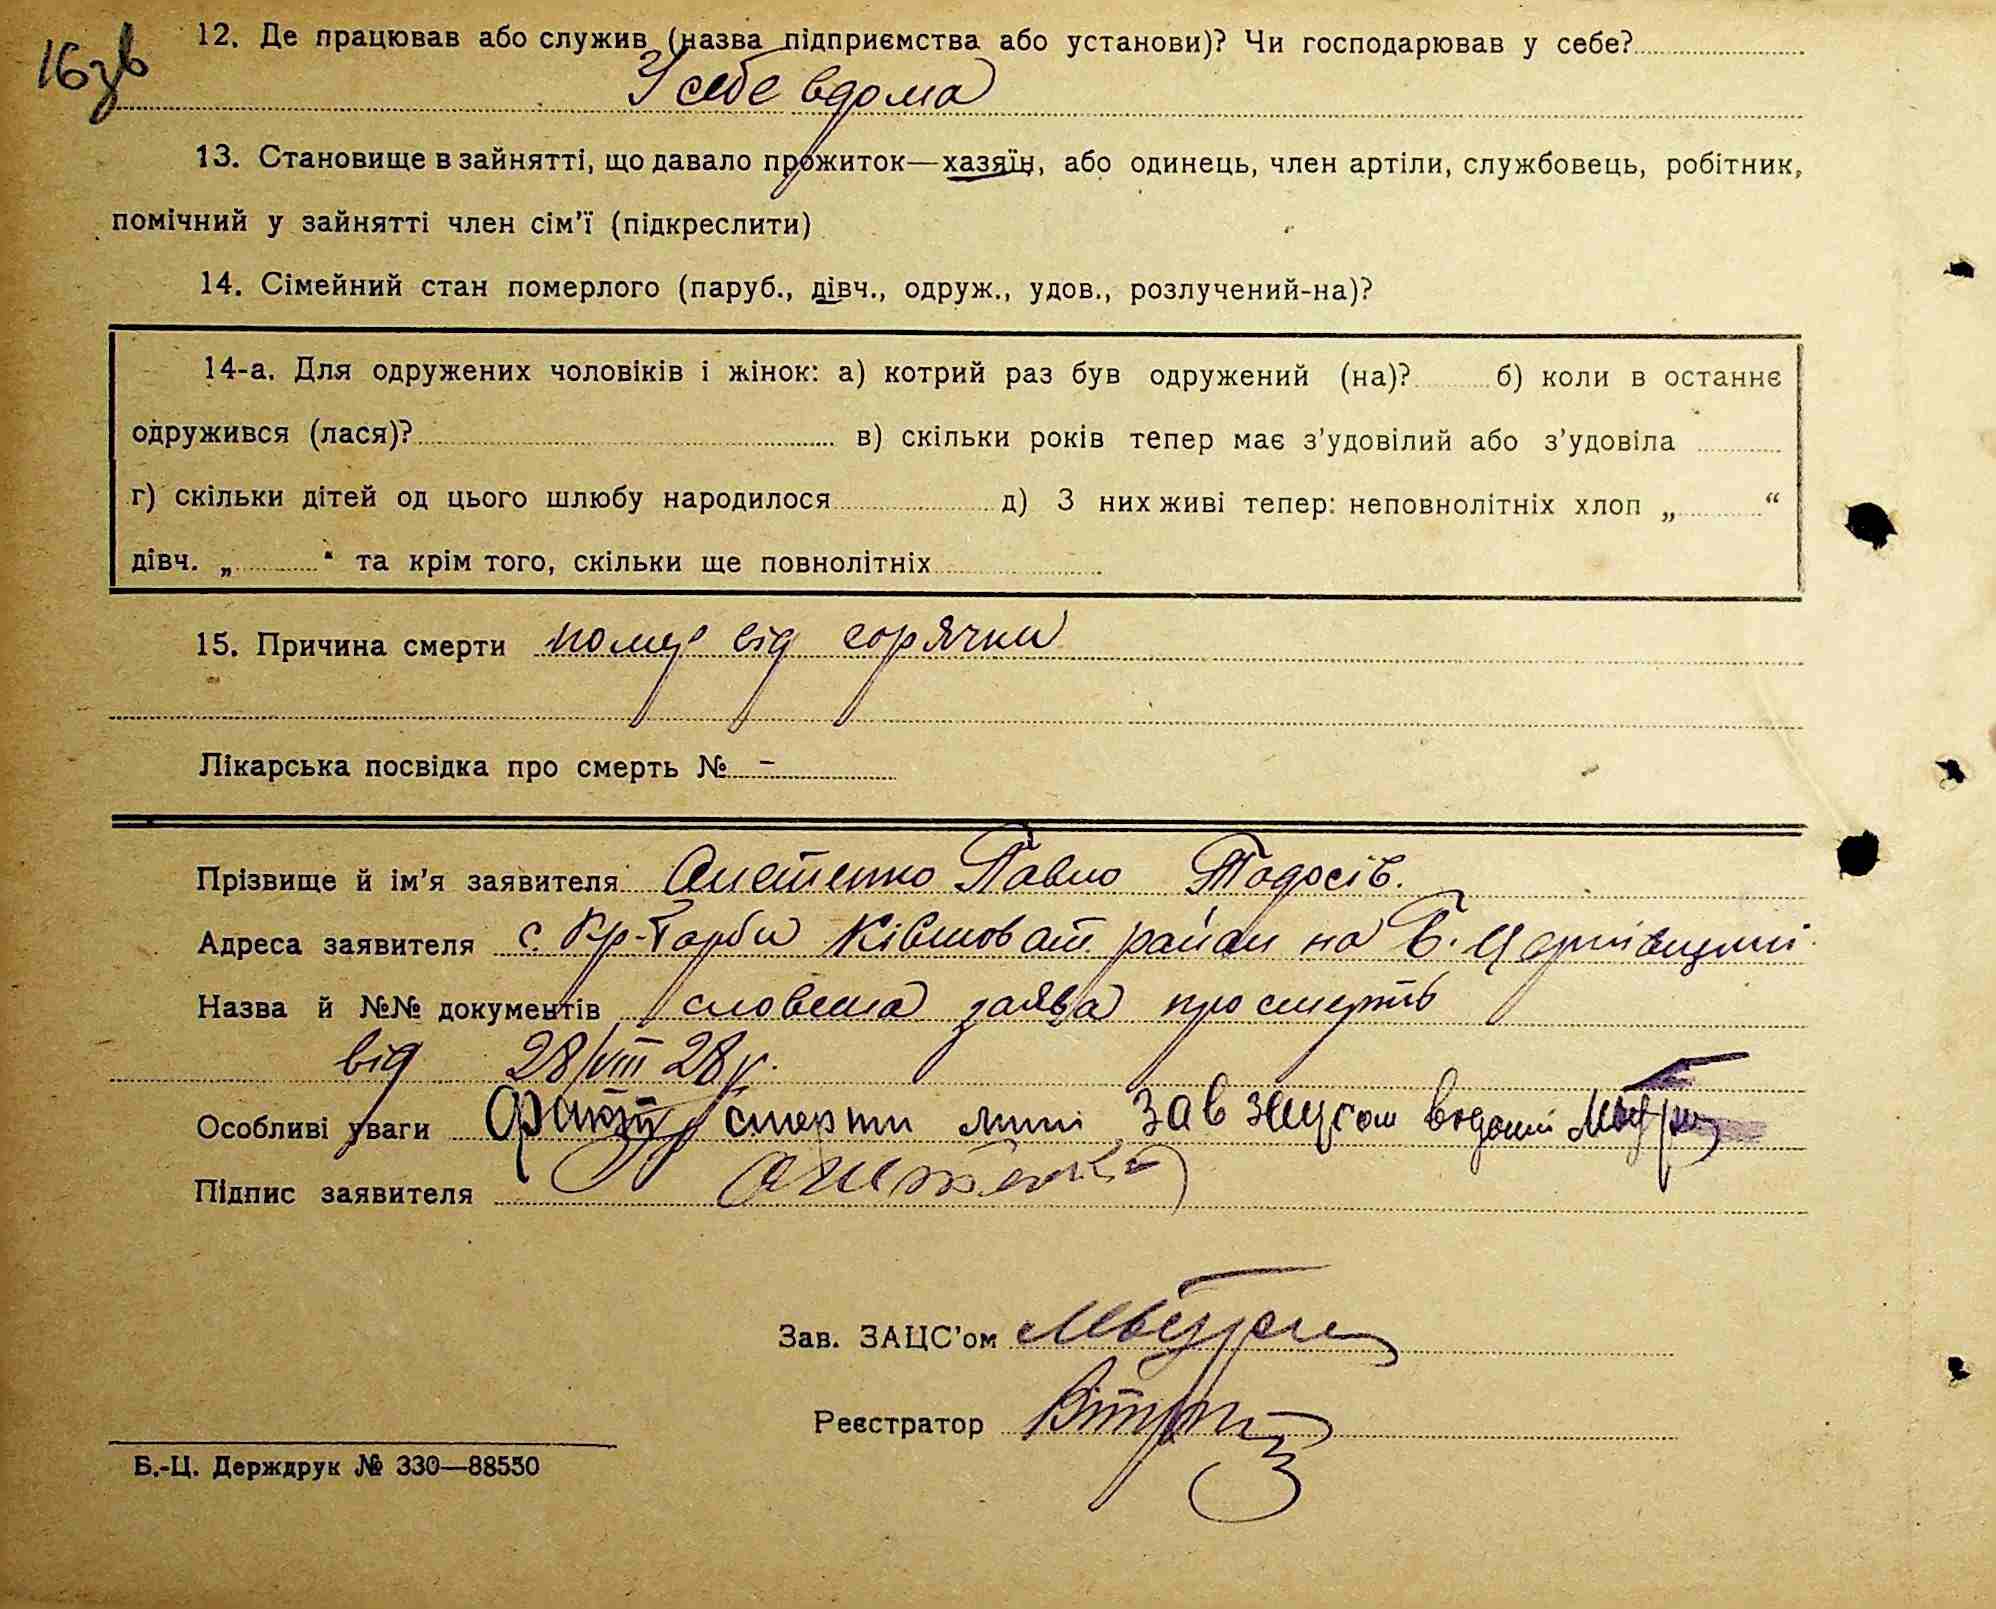 16 зв
12. Де працював або служив (назва підприємства або установи)? Чи господарював у себе?
У себе вдома
13. Становище в зайнятті, що давало прожиток—хазяїн, або одинець, член артіли, службовець, робітник,
помічний у зайнятті член сім'ї (підкреслити)
14. Сімейний стан померлого (паруб., дівч., одруж., удов., розлучений-на)?
14-а. Для одружених чоловіків і жінок: а) котрий раз був одружений (на)? б) коли в останнє
одружився (лася)? в) скільки років тепер має з'удовілий або з'удовіла
г) скільки дітей од цього шлюбу народилося д) З них живі тепер: неповнолітніх хлоп „ “
дівч. „ “ та крім того, скільки ще повнолітніх
15. Причина смерти помер від горячки
Лікарська посвідка про смерть № -
Прізвище й ім'я заявителя Павло Тодосів.
Адреса заявителя с. Кр-Горби Ківшоват. район на Б. Церківщині
Назва й №№ документів словесна заява про смерть
від 28/VIII 28 р.
Особливі уваги факт смерти мині Зав Загсом відомий
Підпис заявителя
Зав. ЗАЦС'ом
Реєстратор
Б.-Ц. Держдрук № 330—88550